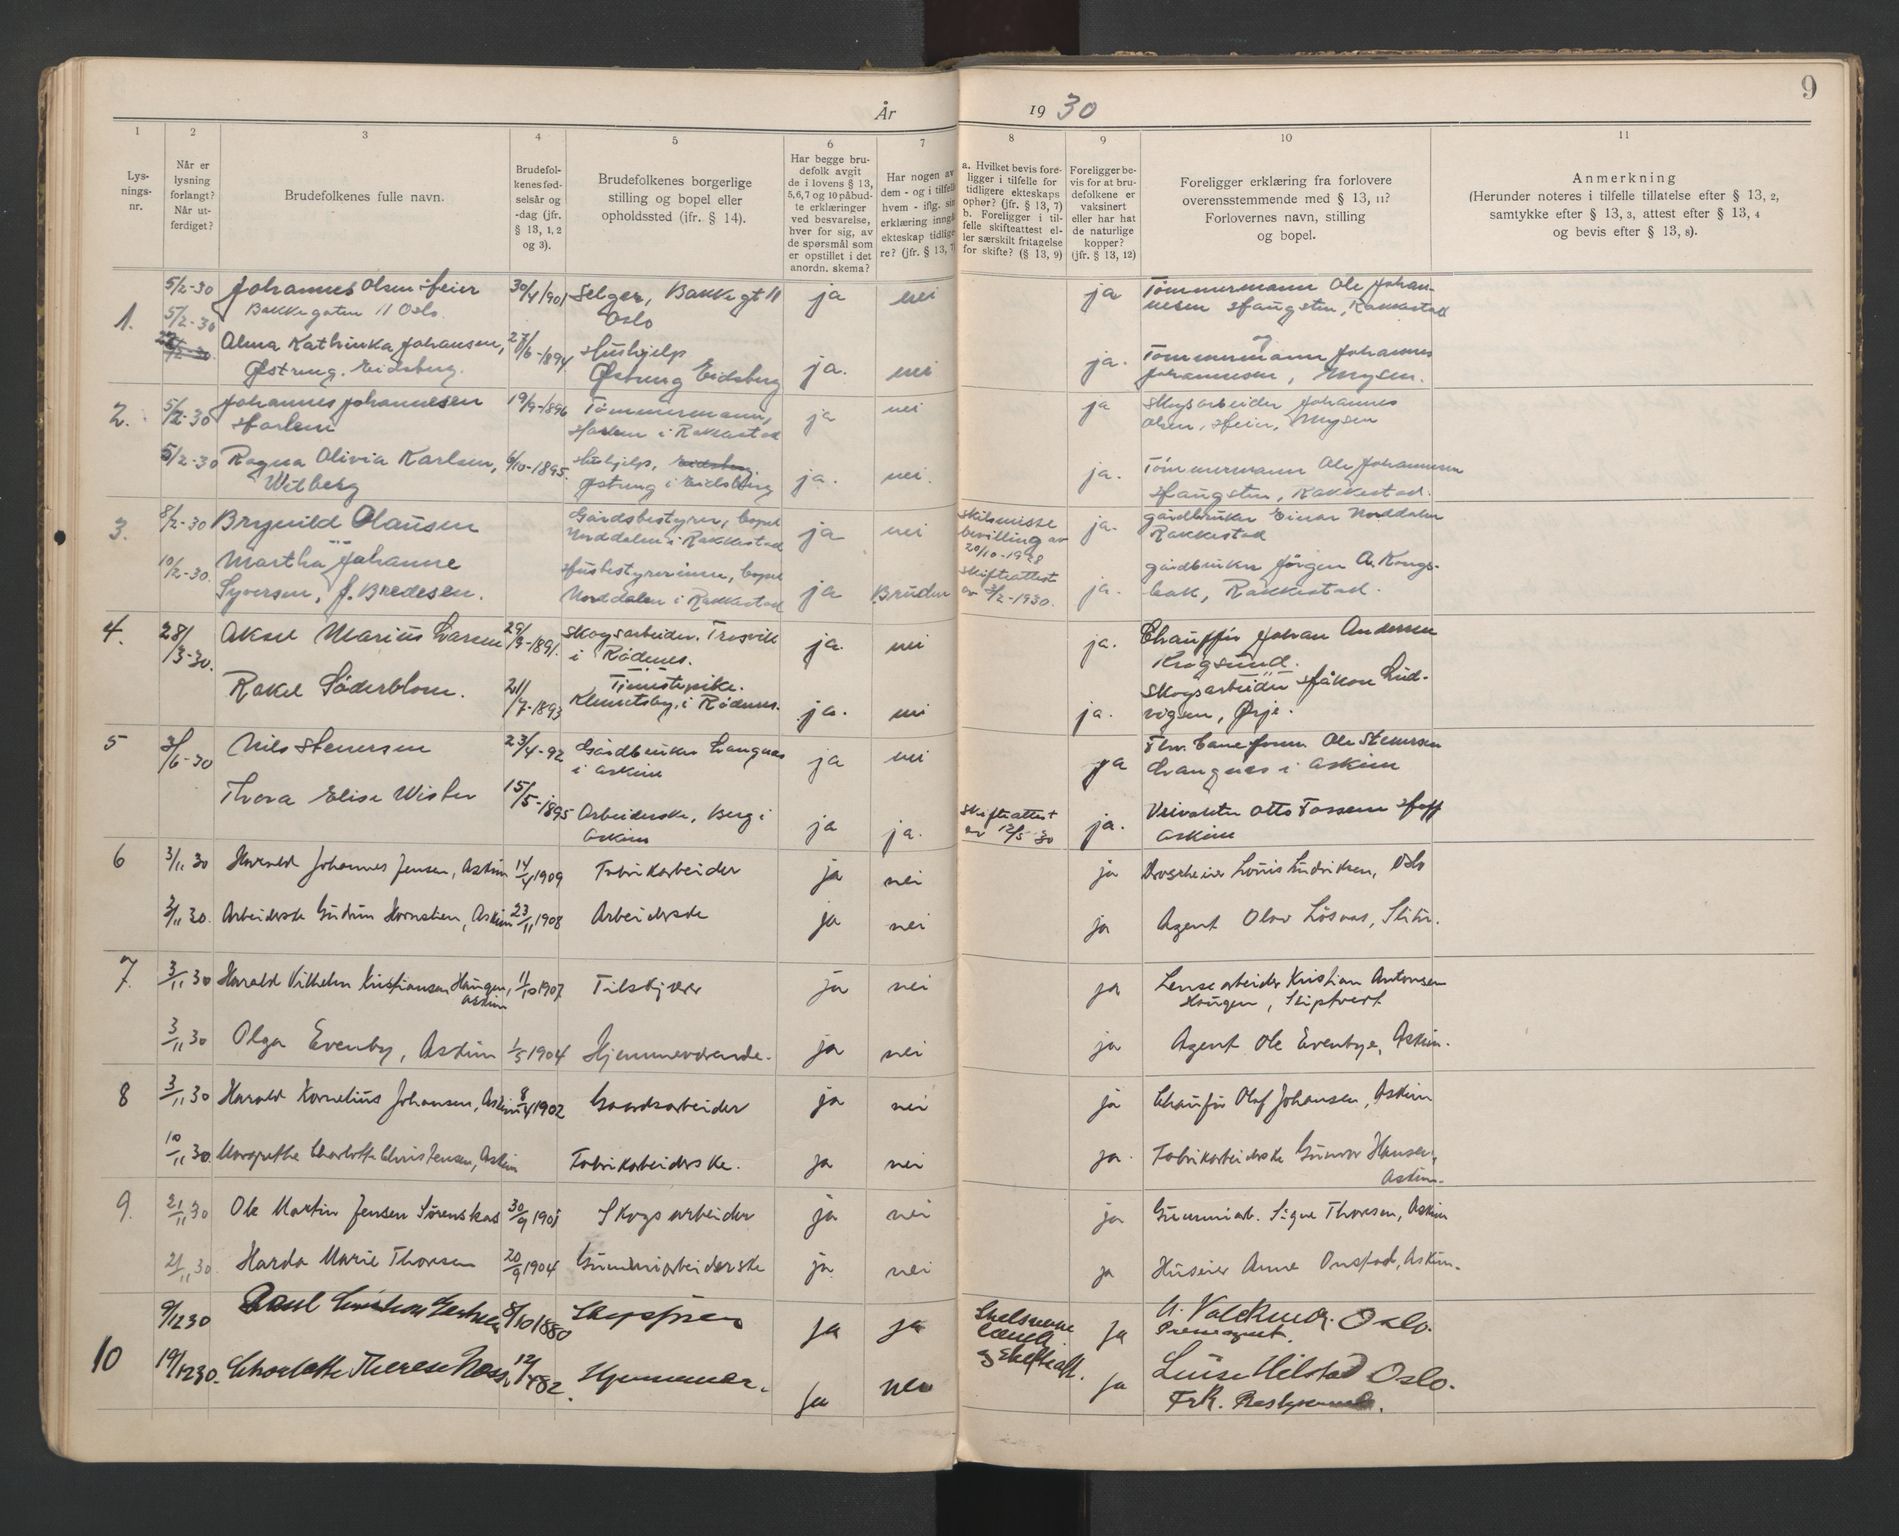 År 1930
9
1 2 3 4 5 6 7 8 9 10 11
Lys-
nings-
nr.
Når er
lysning
forlangt?
Når ut-
ferdiget?
Brudefolkenes fulle navn.
Brudefol-
kenes fød-
selsår og
-dag (jfr.
§ 13, 1, 2
og 3).
Brudefolkenes borgerlige
stilling og bopel eller
opholdssted (jfr. § 14).
Har begge bru-
defolk avgit
de i lovens § 13,
5,6,7 og 10 påbud-
te erklæringer
ved besvarelse,
hver for sig, av
de spørsmål som
er opstillet i det
anordn. skema?
Har nogen av
dem - og i tilfelle
hvem - iflg. sin
erklæring inngå
ekteskap tidlige-
re? (jfr. § 13, 7)
a. Hvilket bevis fore-
ligger i tilfelle for
tidligere ekteskaps
ophør? (jfr. § 13, 7)
b. Foreligger i til-
felle skifteattest el-
ler særskilt fritagelse
for skifte? (§ 13, 9)
Foreligger be-
vis for at bru-
defolkene er
vaksinert
eller har hat
de naturlige
kopper?
(jfr. § 13, 12)
Foreligger erklæring fra forlovere
overensstemmende med § 13, 11?
Forlovernes navn, stilling
og bopel.
Anmerkning
(Herunder noteres i tilfelle tillatelse efter § 13, 2,
samtykke efter § 13, 3, attest efter § 13, 4
og bevis efter § 13, 8).
1. 5/2-30 Johannes Olsen Heier 30/4 1901 Selger, Bakkegt 11 ja nei ja Tömmermann Ole Johan-
5/2-30 Bakkegaten 11 Oslo. Oslo nesen Haugsten, Rakkestad
Alma Kathinka Johansen, 27/6-1894 Hushjelp ja. nei ja. og Tömmermann Johannes
Østreng. Eidsberg. Østreng Eidsberg Johannesen, Mysen.
2. 5/2-30 Johannes Johannesen 19/9-1896 Tømmermann, ja nei ja Skogsarbeider Johannes
Harlem Harlem i Rakkestad Olsen, Heier, Mysen
5/2-30 Ragna Olivia Karlsen, 6/10-1895. Hushjelp, Eidsberg. ja. nei. ja. Tömmermann Ole Johannesen
Witberg Østreng i Eidsberg Haugsten, Rakkestad.
3. 8/2-30 Brynild Olausen Gårdsbestyrer, bopel ja nei Skilsmisse ja. gårdbruker Einar Norddalen
Norddalen i Rakkestad bevilling av Rakkestad
20/10-1928
10/2-30. Martha Johanne Husbestyrerinne, bopel ja Bruden Skifteattest ja. gårdbruker Jörgen A. Kongs-
Syversen, f. Bredesen. Norddalen i Rakkestad av 3/2-1930. bak, Rakkestad.
4. 28/3-30. Aksel Marius Larsen 29/9-1891. Skogsarbeider. Trosvik ja. nei ja. Chaufför Johan Andersen
i Rødenes. Krogsund.
Rakel Söderblom. 21/7-1893 Tjenestepike. ja. nei ja. Skogsarbeider Håkon Lud-
Klemetsby, i Rødenes. vigsen, Ørje.
5 3/6-30 Nils Stenersen 23/4-92 Gårdbruker Langnes ja nei ja Fhv. Ole Stenersen
i Askim Langnes i Askim
Thora Elise Wister 15/5-1895 Arbeiderske, Berg i ja ja. Skifteattest ja. Veivokter Otto Fossem Hoff
Askim av 12/5 30 Askim
6 3/11 30 Harald Johannes Jensen, Askim 14/4 1909 Fabrikarbeider ja nei ja Drosjeeier Louis Ludviksen, Oslo
3/11 30. Arbeiderske Gudrun Kornelsen, Askim 23/11 1908 Arbeiderske ja nei ja Agent Olav Løsnes, Slitu.
7. 3/11 30 Harald Vilhelm Kristiansen Haugen, 11/10 1907 Tilskjærer ja nei ja Lensearbeider Kristian Antonsen
Askim Haugen, Skiptvet
3/11 30 Olga Evenby, Askim 1/5 1904 Hjemmeværende. ja nei ja Agent Ole Evenbye, Askim.
8 3/11 30 Harald Kornelius Johansen, Askim 8/4 1902 Gaardsarbeider ja nei ja Chauför Olaf Johansen, Askim
10/11 30. Margrethe Charlotte Christensen, Askim Fabrikarbeiderske. ja nei ja. Fabrikarbeiderske Gunvor Hansen,
Askim.
9. 21/11 30 Ole Martin Jensen Sørenskas 30/9 1901 Skogsarbeider ja nei ja Gummiarb. Signe Thoresen, Askim
21/11 30. Harda Marie Thoresen 20/9 1904 Gummiarbeiderske ja nei ja Huseier Anne Onstad, Askim.
10 9/12 30 8/10 1880 ja ja Skilsmisse ja Oslo.
19/12 30. Charlotte Therese Næss, 12/4 82. Hjemmev. ja nei og Skifteatt. ja Luise Milstad Oslo.
Frk.